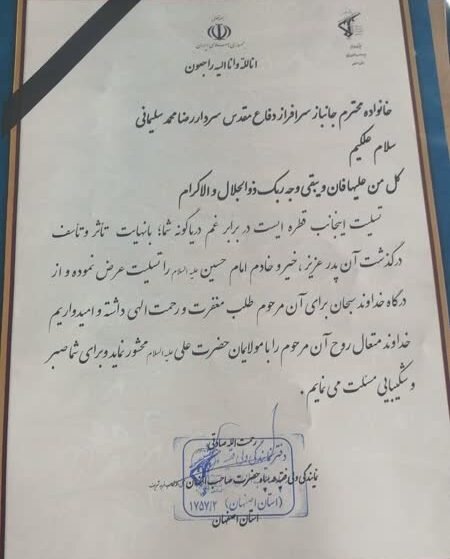 جمهوری اسلامی ایران
انا لله و انا الیه راجعون
خانواده محترم جانباز سرافراز دفاع مقدس سردار رضا محمد سلیمانی
سلام علیکم
کل من علیها فان و یبقی وجه ربک ذوالجلال و الاکرام
تسلیت اینجانب قطره ایست در برابر غم دریاگونه شما؛ بانهایت تاثر و تاسف
درگذشت آن پدر عزیز، خیر و خادم امام حسین علیه السلام را تسلیت عرض نموده و از
درگاه خداوند سبحان برای آن مرحوم طلب مغفرت و رحمت الهی داشته و امیدواریم
خداوند متعال روح آن مرحوم را با مولایمان حضرت علی علیه السلام محشور نماید و برای شما صبر
و شکیبایی مسئلت می نمایم.
رحمت الله صادقی
دفتر نمایندگی ولی فقیه
نمایندگی ولی فقیه سپاه حضرت صاحب الزمان
(استان اصفهان) ۱۷۵۷/۲
استان اصفهان